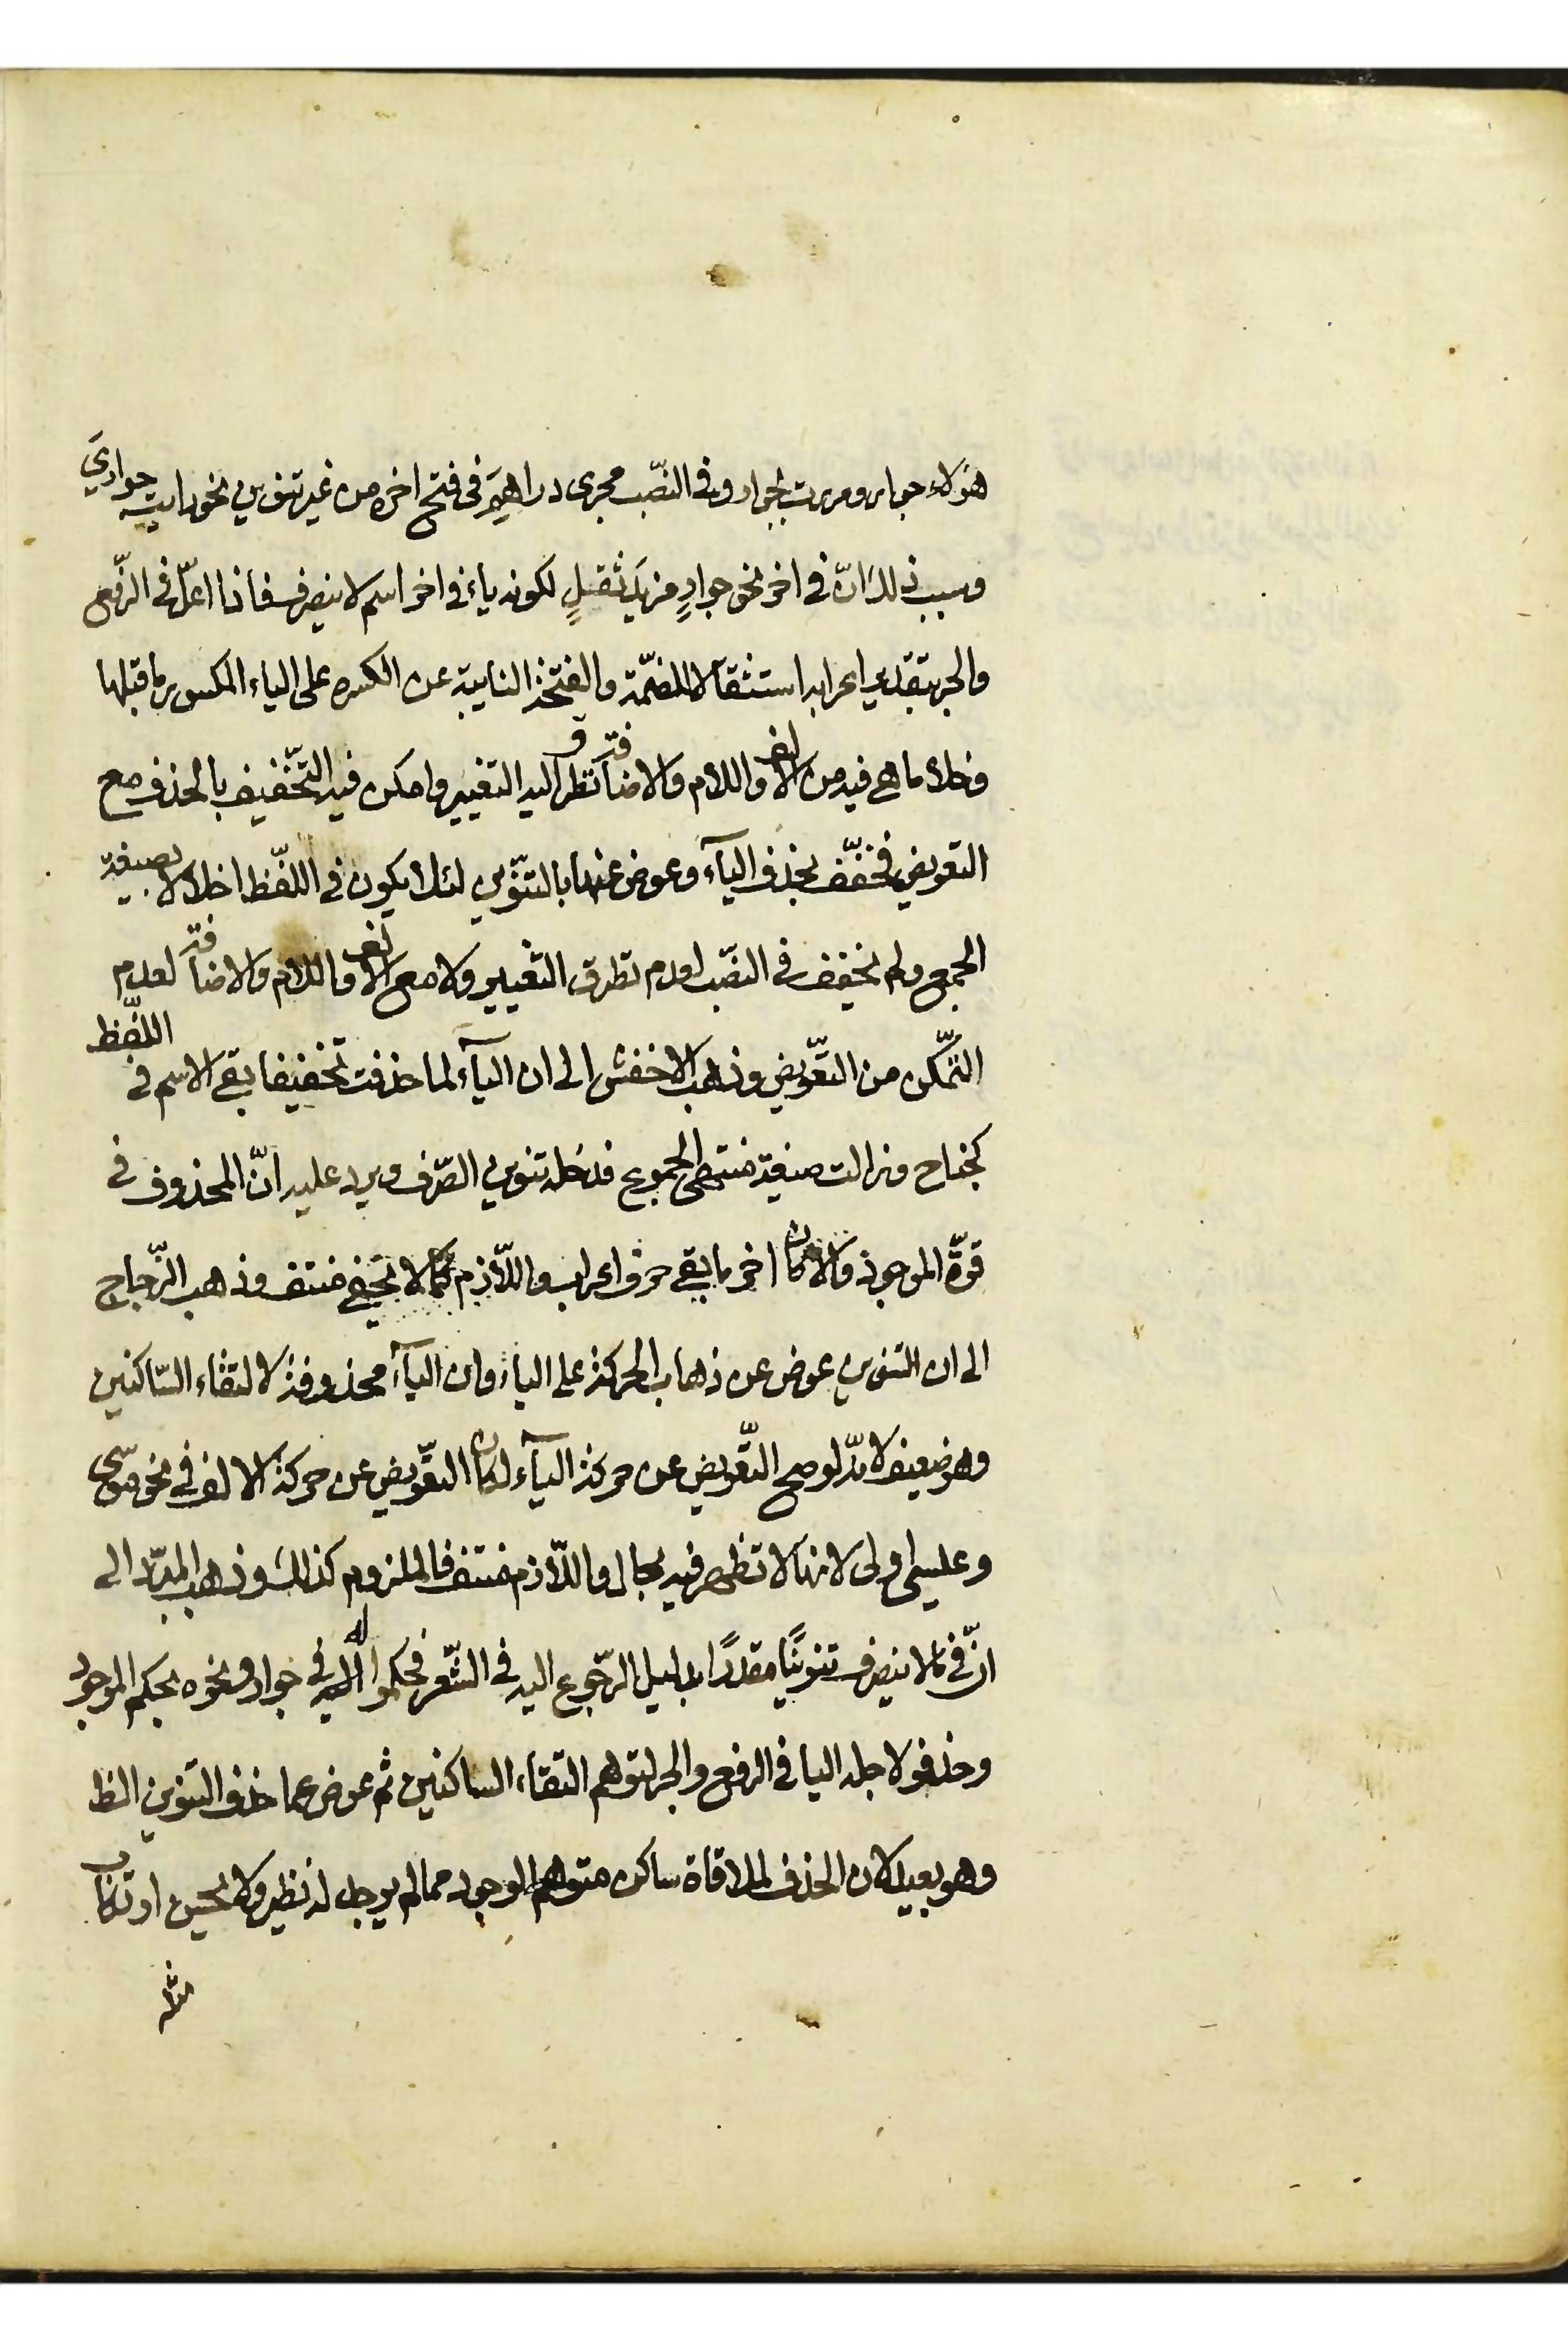 هؤلاء جوار ومررت بجوار وفى النصّب مجرى دراهِمَ فى فتح اخره من غير تنوين نحو رايت جوارىَ
وسبب ذلك انّ فى اخر نحو جوارٍ مزيدَ ثقلٍ لكونه ياء فى اخر اسم لا ينصرف فاذا اعلّ فى الرّفع
والجر بتقدير اعرابه استثقالا للضّمة والفتحة النايبة عن الكسره على الياء المكسور ما قبلها
وخلا ما هى فيه من الالف واللام والاضافة تطرق اليه التغيير وامكن فيه التّخفيف بالحذف مع
التعويض فخفّف بحذف اليآء وعوض عنها بالتنّوين لئلا يكون فى اللفّظ اخلال بصيغة
الجمع ولم يخفف فى النصّب لعدم تطرق التغيير ولا مع الالف واللام والاضافة لعدم
التّمكن من التعّويض وذهب الاخفش الى ان اليآء لما حذفت تخفيفا بقى الاسم فى اللفّظ
كجناح وزالت صيغة منتهى الجموع فدخله تنوين الصّرف ويرد عليه انّ المحذوف فى
قوّة الموجود والا كان اخر ما بقى حرف اعراب واللّازم كما لا يخفى منتف وذهب الزّجاج
الى ان التنوين عوض عن ذهاب الحركة على الياء وان اليآء محذوفة لالتقاء السّاكنين
وهو ضعيف لانّه لو صح التّعويض عن حركة اليآء لكان التعّويض عن حركة الالف فى نحو موسى
وعيسى اولى لانها لا تظهر فيه بحال واللّازم منتف فالملزوم كذلك وذهب المبرّد الى
انّ فى ما لا ينصرف تنوينًا مقدرًا بدليل الرّجوع اليه فى الشّعر فحكموا له فى جوار ونحوه بحكم الموجود
وحذفو لاجله اليا فى الرفع والجر لتوهم التقاء الساكنين ثم عوض عما حذف التنوين الظا
وهو بعيد لان الحذف لملاقاة ساكن متوهم الوجود مما لم يوجد له نظير ولا يحسن ارتكاب
مثله